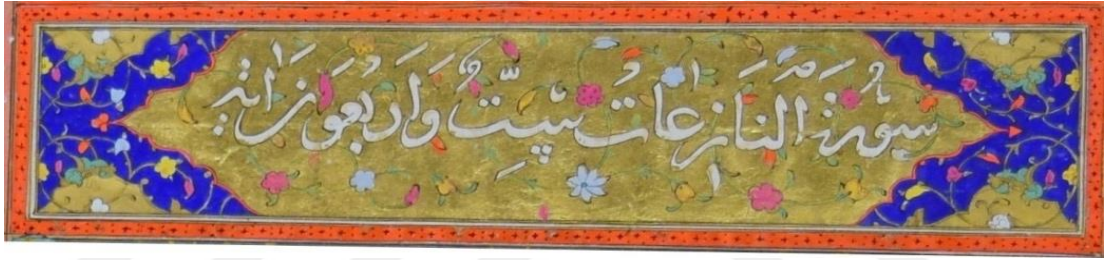 سورة النازعات ست واربعون اية